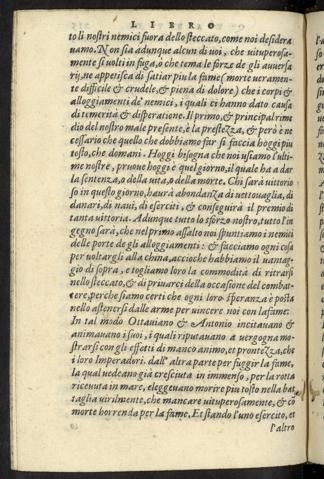 LIBRO
to li nostri nemici fuora dello steccato, come noi desidera
uamo. Non sia adunque alcun di uoi, che uituperosa-
mente si uolti in fuga, ò che tema le forze de gli auuersa
rij, ne appetisca di satiar piu la fame (morte ueramen-
te difficile & crudele, & piena di dolore) che i corpi &
alloggiamenti de' nemici, i quali ci hanno dato causa
di temerità & disperatione. Il primo, & principal rime
dio del nostro male presente, è la prestezza, & però è ne
cessario che quello che dobbiamo far si faccia hoggi piu
tosto, che domani. Hoggi bisogna che noi usiamo l'ulti-
me nostre, pruoue hoggi è quel giorno, il quale ha a dar
la sentenza, o della uita, o della morte. Chi sarà uittorio
so in questo giorno, haurà abondanza di uettouaglia, di
danari, di naui, di eserciti, & conseguirà il premio di
tanta uittoria. Adunque tutto lo sforzo nostro, tutto l'in
gegno sarà, che nel primo assalto noi spuntiamo i nemici
delle porte de gli alloggiamenti: & facciamo ogni cosa
per uoltargli alla china, accioche habbiamo il uantag-
gio di sopra, e togliamo loro la commodità di ritrarsi
nello steccato, & di priuarci della occasione del combat-
tere, perche siamo certi che ogni loro speranza è posta
nello astenersi dalle arme per uincere noi con la fame.
In tal modo Ottauiano & Antonio incitauano &
animauano i suoi, i quali riputauano a uergogna mo-
strarsi con gli effetti di manco animo, et prontezza, che
i loro Imperadori. dall' altra parte per fuggir la fame,
la qual uedeano già cresciuta in immenso, per la rotta
riceuuta in mare, eleggeuano morire piu tosto nella bat
taglia uirilmente, che mancare uituperosamente, & cō
morte horrenda per la fame, Et stando l'uno esercito, et
l'altro